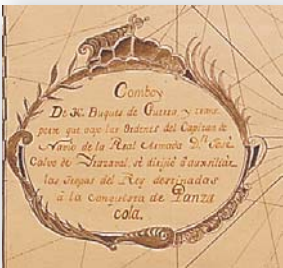 Comboy
De 16 Buques de Guerra y trans
porte que bajo las Ordenes del Capitan de
Navio de la Real Armada Dn José
Calvo de Irazaval, se dirigió á auxiliar
las Tropas del Rey destinadas
á la conquista de Panza
cola.